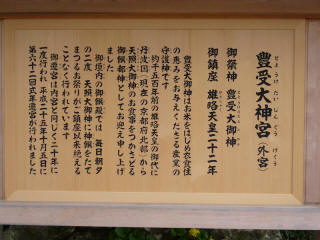 豊受大神宮（外宮）
とようけ だい じんぐう げくう
御祭神 豊受大御神
御鎮座 雄略天皇二十二年
豊受大御神はお米をはじめ衣食住
の恵みをお与えくださる産業の
守護神です
約千五百年前の雄略天皇の御代に
丹波国（現在の京都府北部）から
天照大御神のお食事をつかさどる
御饌都神としてお迎え申し上げ
ました
御垣内の御饌殿では 毎日朝夕
の二度 天照大御神に神饌をたて
まつるお祭りがご鎮座以来絶える
ことなく行われています
御遷宮は内宮と同じく二十年に
一度行われ 平成二十五年十月五日に
第六十二回式年遷宮が行われました